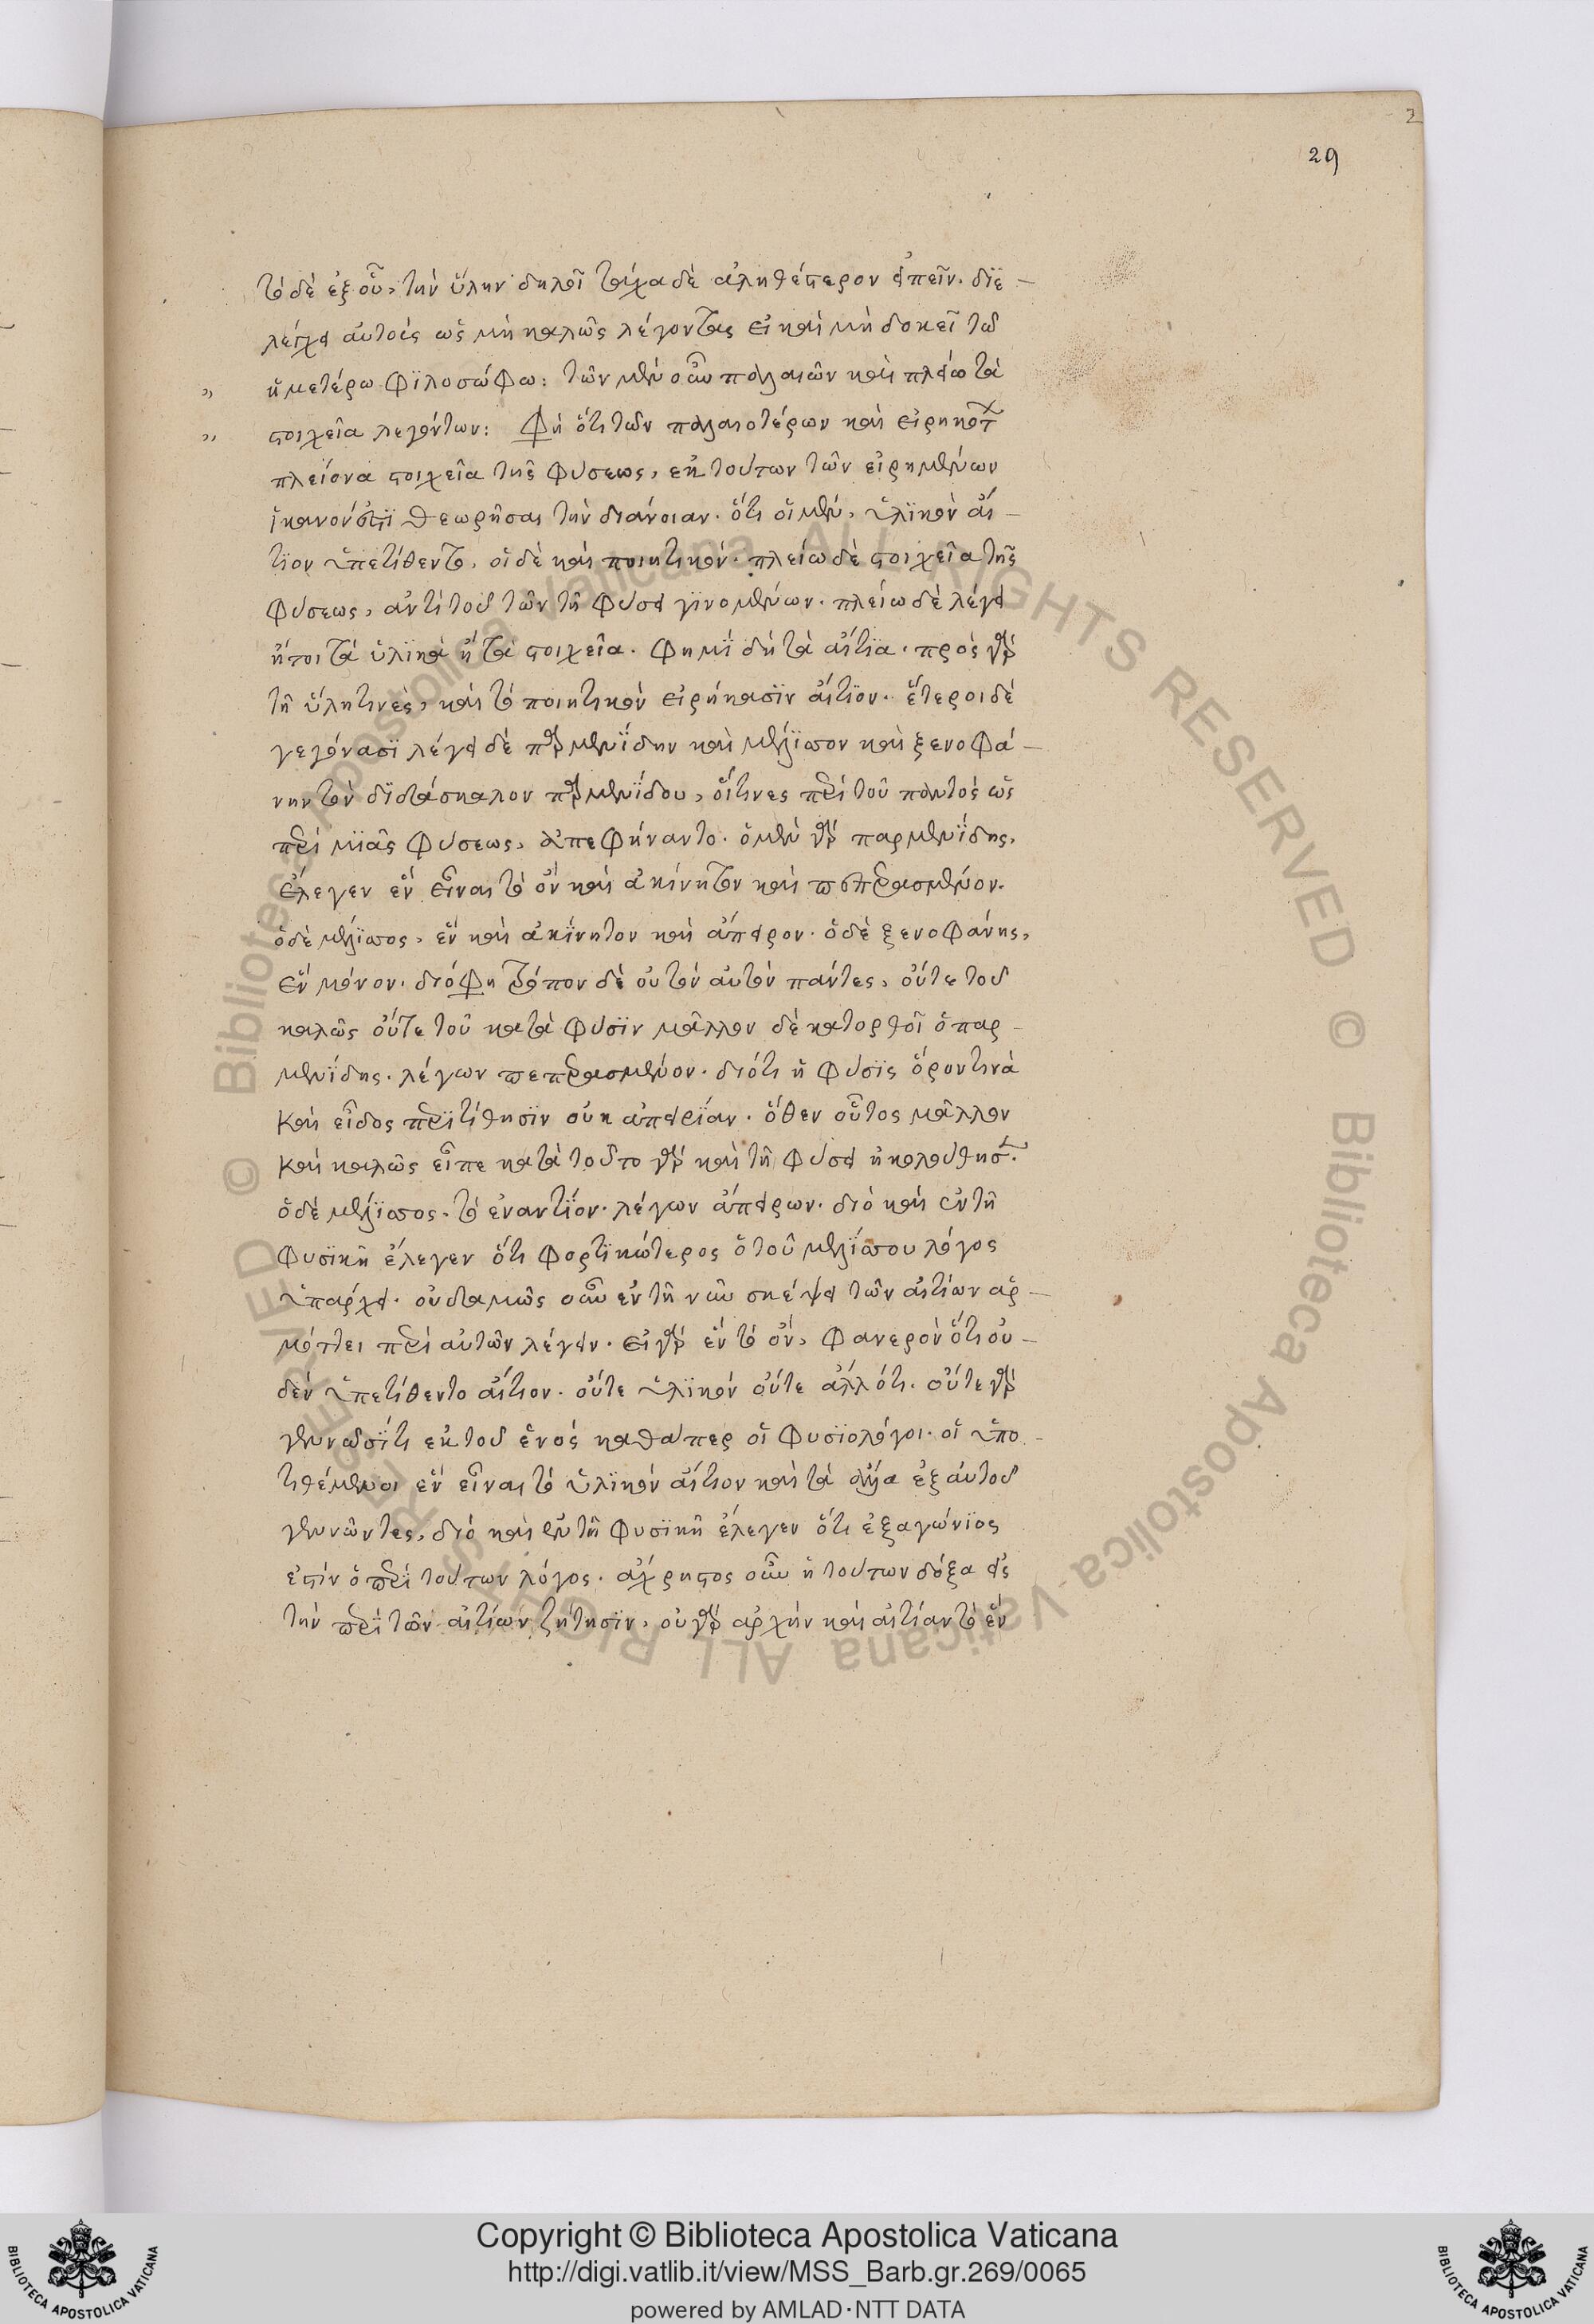 2
29
τὸ δὲ ἐξ οὗ, τὴν ὕλην δηλοῖ τάχα δὲ ἀληθέστερον εἰπεῖν. διε–
λέγχει αὐτοὺς ὡς μὴ καλῶς λέγοντας εἰ καὶ μὴ δοκεῖ τῶ
ἡμετέρω φϊλοσώφω: τῶν μὲν οὖν παλαιῶν καὶ πλείω τὰ
στοιχεῖα λεγόντων: Φη ὅτι τῶν παλαιοτέρων καὶ εἰρηκότ
πλείονα στοιχεῖα τῆς φύσεως, ἐκ τούτων τῶν εἰρημένων
ἱκανόν ἐστϊ θεωρῆσαι τὴν διάνοιαν. ὅτι οἱ μὲν, ὑλϊκὸν αἴ–
τϊον ὑπετίθεντο, οἱ δὲ καὶ ποιητικόν. πλείω δὲ στοιχεῖα τῆς
φύσεως, ἀντὶ τοῦ τῶν τῆ φύσει γϊνομένων. πλείω δὲ λέγει
ἤτοι τὰ ὑλϊκὰ ἢ τὰ στοιχεῖα. φημϊ δὴ τὰ αἴτϊα. πρὸς γὰρ
τῆ ὕλη τινὲς, καὶ τὸ ποιητικὸν εἰρήκασϊν αἴτϊον. ἕτεροι δὲ
γεγόνασϊ λέγει δὲ παρμενΐδην καὶ μέλϊσσον καὶ ξενοφά–
νην τὸν δϊδάσκαλον παρμενΐδου, οἵτινες περὶ τοῦ παντὸς ὡς
περὶ μϊᾶς φύσεως, ἀπεφήναντο. ὁ μὲν γὰρ παρμενΐδης,
ἔλεγεν ἓν εἶναι τὸ ὂν καὶ ἀκίνητον καὶ πεπερασμένον.
ὁ δὲ μέλϊσσος, ἓν καὶ ἀκΐνητον καὶ ἄπειρον. ὁ δὲ ξενοφάνης,
ἓν μόνον. διό φη τρόπον δὲ οὐ τὸν αὐτὸν πάντες, οὔτε τοῦ
καλῶς οὔτε τοῦ κατὰ φύσϊν μᾶλλον δὲ κατορθοῖ ὁ παρ–
μενΐδης. λέγων πεπερασμένον. διότι ἡ φύσϊς ὅρον τινὰ
καὶ εἶδος περϊτίθησϊν οὐκ ἀπειρΐαν. ὅθεν οὗτος μᾶλλον
καὶ καλῶς εἶπε κατὰ τοῦτο γὰρ καὶ τῆ φύσει ἠκολούθησ.
ὁ δὲ μέλϊσσος. τὸ ἐναντΐον. λέγων ἄπειρων. διὸ καὶ ἐν τῆ
φυσϊκῆ ἔλεγεν ὅτι φορτϊκώτερος ὁ τοῦ μελΐσσου λόγος
ὑπάρχει. οὐδαμῶς οὖν ἐν τῆ νῦν σκέψει τῶν αἰτίων ἁρ–
μόττει περὶ αὐτῶν λέγειν. εἰ γὰρ ἓν τὸ ὂν, φανερὸν ὅτι οὐ–
δὲν ὑπετίθεντο αἴτιον. οὔτε ὑλϊκόν οὔτε ἄλλό τι. οὔτε γὰρ
γεννῶσΐ τι ἐκ τοῦ ἑνός καθάπερ οἱ φυσϊολόγοι. οἱ ὑπο–
τιθέμενοι ἓν εἶναι τὸ ὑλϊκόν αἴτιον καὶ τὰ ἄλλα ἐξ αὐτοῦ
γεννῶντες, διὸ καὶ ἐν τῆ φυσϊκῆ ἔλεγεν ὅτι ἐξαγώνϊος
ἐστὶν ὁ περϊ τούτων λόγος. ἄχρηστος οὖν ἡ τούτων δόξα εἰς
τὴν περϊ τῶν αἰτίων ζήτησϊν, οὐ γὰρ ἀρχὴν καὶ αἰτίαν τὸ ἓν
© Biblioteca Apostolica Vaticana ALL RIGHTS RESERVED © Biblioteca Apostolica Vaticana ALL RIGHTS RESERVED
Copyright © Biblioteca Apostolica Vaticana
http://digi.vatlib.it/view/MSS_Barb.gr.269/0065
powered by AMLAD·NTT DATA
BIBLIOTECA APOSTOLICA VATICANA
BIBLIOTECA APOSTOLICA VATICANA